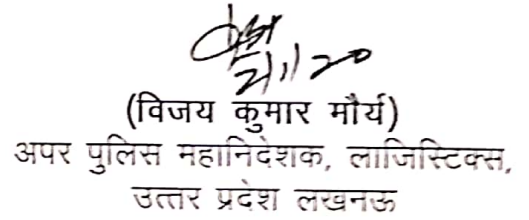 (विजय कुमार मौर्य)
अपर पुलिस महानिदेशक, लाजिस्टिक्स,
उत्तर प्रदेश लखनऊ